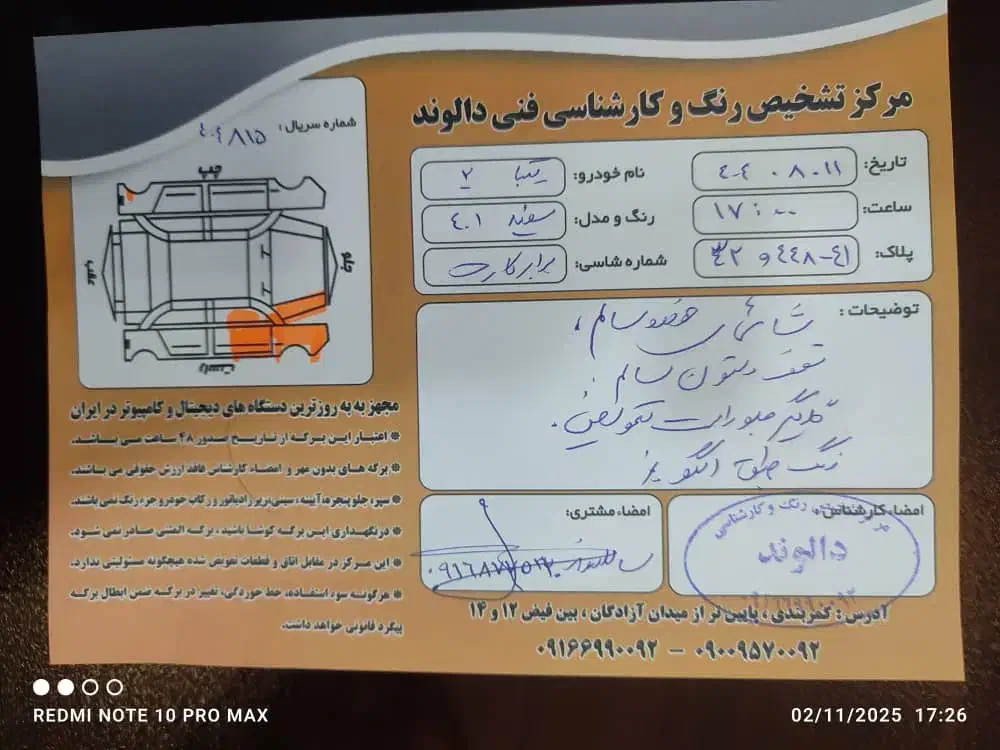 مرکز تشخیص رنگ و کارشناسی فنی دالوند
شماره سریال: ۴۰۴۸۱۵
تاریخ: ۴۰۴.۰۸.۱۱
نام خودرو: تیبا ۲
ساعت: ۱۷:۰۰
رنگ و مدل: سفید ۴۰۱
پلاک: ۴۱-۴۴۸ و ۳۲
شماره شاسی: برابر کارت
چپ
جلو
عقب
راست
توضیحات: شاسی های سالم،
سقف ستون سالم.
گلگیر جلو راست تعویض.
رنگ طبق الگو
مجهز به به روزترین دستگاه های دیجیتال و کامپیوتر در ایران
※ اعتبار این برگه از تاریخ صدور ۴۸ ساعت می باشد.
※ برگه های بدون مهر و امضاء کارشناس فاقد ارزش حقوقی می باشد.
※ سپر، جلو پنجره، آیینه، سینی زیر رادیاتور و رکاب خودرو جزء رنگ نمی باشد.
※ در نگهداری این برگه کوشا باشید، برگه المثنی صادر نمی شود.
※ این مرکز در مقابل اتاق و قطعات تعویض شده هیچگونه مسئولیتی ندارد.
※ هرگونه سوء استفاده، خط خوردگی، تغییر در برگه ضمن ابطال برگه
پیگرد قانونی خواهد داشت.
امضاء کارشناس:
رنگ و کارشناسی
دالوند
امضاء مشتری:
آدرس: کمربندی، پایین تر از میدان آزادگان، بین فیض ۱۲ و ۱۴
۰۹۰۰۹۵۷۰۰۹۲ - ۰۹۱۶۶۹۹۰۰۹۲
REDMI NOTE 10 PRO MAX
02/11/2025 17:26